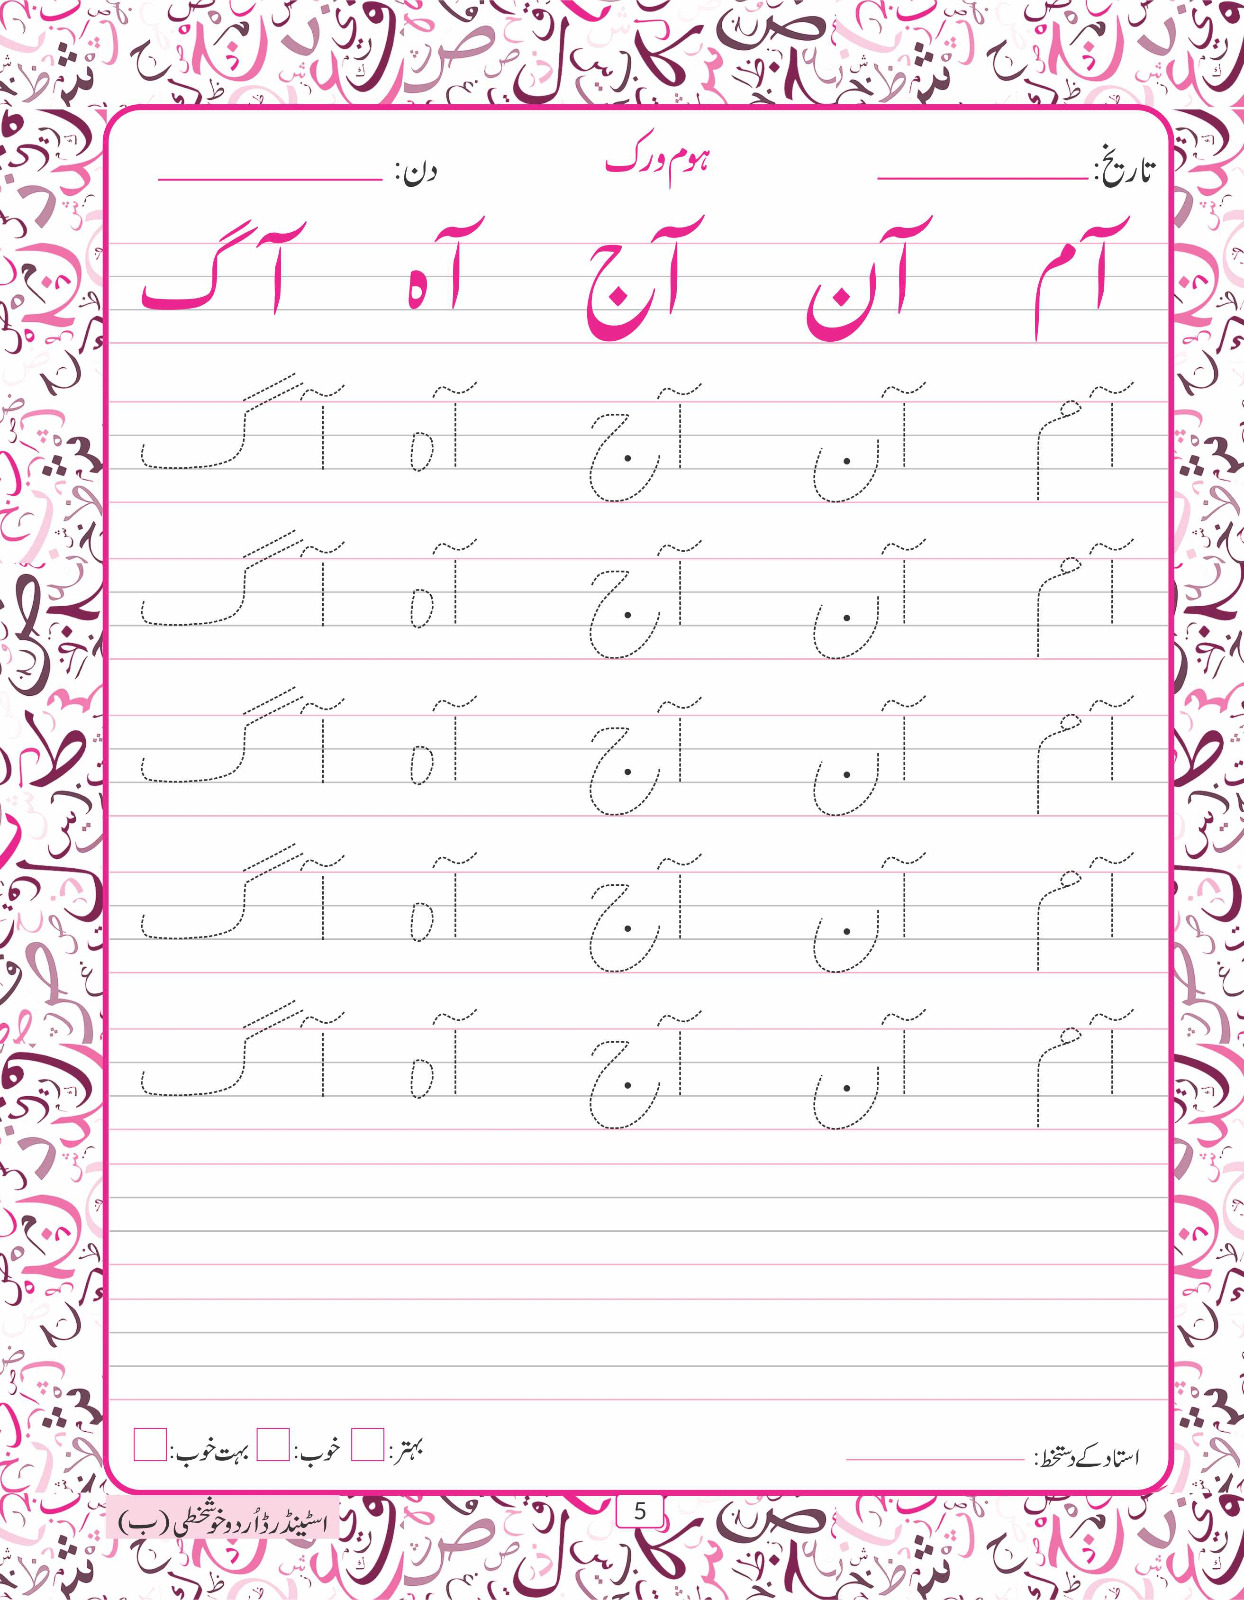 تاریخ: ہوم ورک دن:
آم آن آج آہ آگ
آم آن آج آہ آگ
آم آن آج آہ آگ
آم آن آج آہ آگ
آم آن آج آہ آگ
آم آن آج آہ آگ
استاد کے دستخط: بہتر: خوب: بہت خوب:
5
اسٹینڈرڈ اُردو خوشخطی (ب)